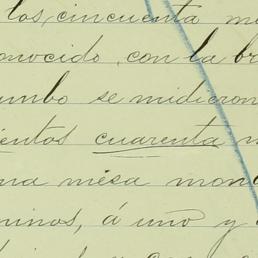 los, cincuenta m
onocido, con la br
umbo se midieron
ientos cuarenta m
na mesa mon
ninos, á uno y